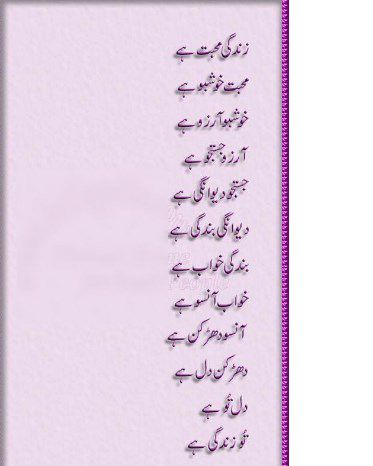 زندگی محبت ہے
محبت خوشبو ہے
خوشبو آرزو ہے
آرزو جستجو ہے
جستجو دیوانگی ہے
دیوانگی بندگی ہے
بندگی خواب ہے
خواب آنسو ہے
آنسو دھڑکن ہے
دھڑکن دل ہے
دل تُو ہے
تُو زندگی ہے